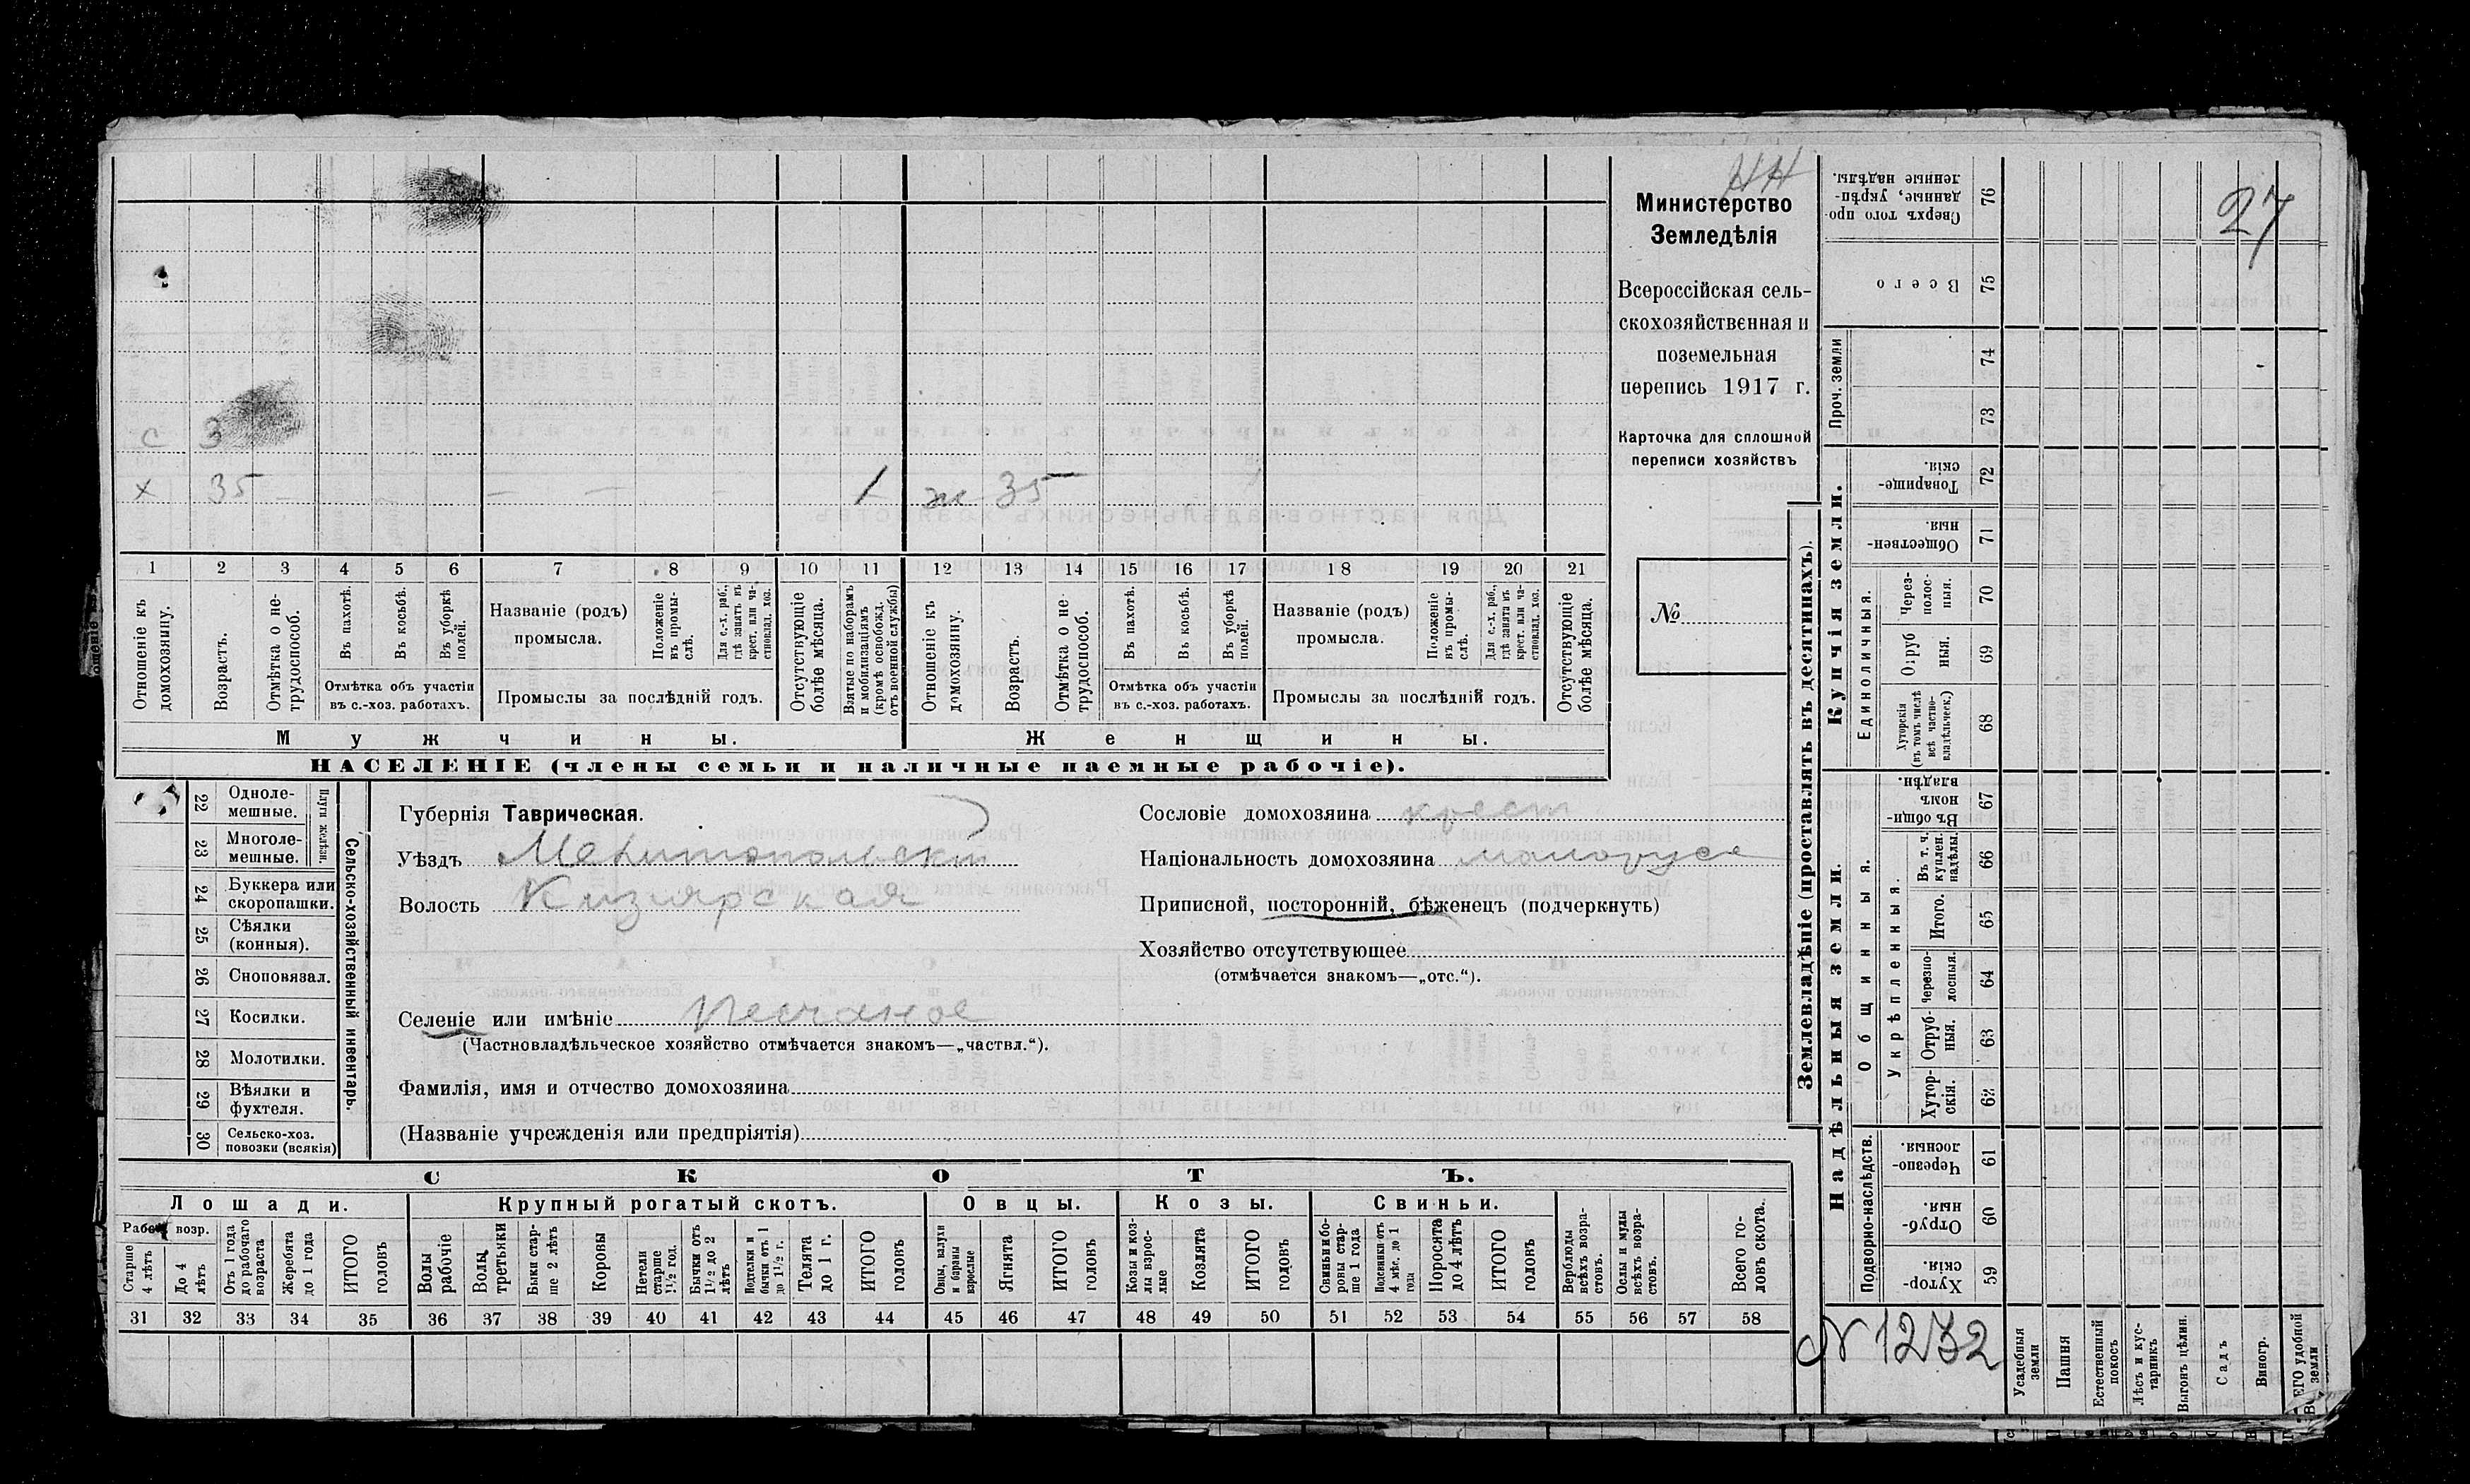 НН
27
Министерство
Земледѣлія
Всероссійская сель-
скохозяйственная и
поземельная
перепись 1917 г.
Карточка для сплошной
переписи хозяйствъ
№
с 3
х 35 — — — — 1 ж 35 —
1 2 3 4 5 6 7 8 9 10 11 12 13 14 15 16 17 18 19 20 21
Отношеніе къ
домохозяину.
Возрастъ.
Отмѣтка о не-
трудоспособ.
Въ пахотѣ.
Въ косьбѣ.
Въ уборкѣ
полей.
Отмѣтка объ участіи
въ с.-хоз. работахъ.
Названіе (родъ)
промысла.
Положеніе
въ промы-
слѣ.
Для с.-х. раб.,
гдѣ занятъ въ
крест. или ча-
стновлад. хоз.
Промыслы за послѣдній годъ.
Отсутствующіе
болѣе мѣсяца.
Взятые по наборамъ
и мобилизаціямъ
(кромѣ освобожд.
отъ военной службы)
Отношеніе къ
домохозяину.
Возрастъ.
Отмѣтка о не-
трудоспособ.
Въ пахотѣ.
Въ косьбѣ.
Въ уборкѣ
полей.
Отмѣтка объ участіи
въ с.-хоз. работахъ.
Названіе (родъ)
промысла.
Положеніе
въ промы-
слѣ.
Для с.-х. раб.,
гдѣ занята въ
крест. или ча-
стновлад. хоз.
Промыслы за послѣдній годъ.
Отсутствующіе
болѣе мѣсяца.
Мужчины.
Женщины.
НАСЕЛЕНІЕ (члены семьи и наличные наемные рабочіе).
22 Одноле-
мешные.
23 Многоле-
мешные.
Плуги желѣзн.
24 Буккера или
скоропашки.
25 Сѣялки
(конныя).
26 Сноповязал.
27 Косилки.
28 Молотилки.
29 Вѣялки и
фухтеля.
30 Сельско-хоз.
повозки (всякія)
Сельско-хозяйственный инвентарь.
Губернія Таврическая.
Уѣздъ Мелитопольскій
Волость Кизіярская
Селеніе или имѣніе Песчаное
(Частновладѣльческое хозяйство отмѣчается знакомъ—„частвл.“).
Фамилія, имя и отчество домохозяина
(Названіе учрежденія или предпріятія)
Сословіе домохозяина крест
Національность домохозяина малорусс
Приписной, посторонній, бѣженецъ (подчеркнуть)
Хозяйство отсутствующее
(отмѣчается знакомъ—„отс.“).
СКОТЪ.
Лошади.
Крупный рогатый скотъ.
Овцы.
Козы.
Свиньи.
Рабоч. возр.
Старше
4 лѣтъ
До 4
лѣтъ
Отъ 1 года
до рабочаго
возраста
Жеребята
до 1 года
ИТОГО
головъ
Волы
рабочіе
Волы,
третьяки
Быки стар-
ше 2 лѣтъ
Коровы
Нетели
старше
1½ год.
Бычки отъ
1½ до 2
лѣтъ
Подтелки и
бычки отъ 1
до 1½ г.
Телята
до 1 г.
ИТОГО
головъ
Овцы, валухи
и бараны
взрослые
Ягнята
ИТОГО
головъ
Козы и коз-
лы взрос-
лые
Козлята
ИТОГО
головъ
Свиньи и бо-
ровы стар-
ше 1 года
Подсвинки отъ
4 мѣс. до 1
года
Поросята
до 4 лѣтъ
ИТОГО
головъ
Верблюды
всѣхъ возра-
стовъ.
Ослы и мулы
всѣхъ возра-
стовъ.
Всего го-
ловъ скота.
31 32 33 34 35 36 37 38 39 40 41 42 43 44 45 46 47 48 49 50 51 52 53 54 55 56 57 58
Землевладѣніе (проставлять въ десятинахъ).
Купчія земли.
Надѣльныя земли.
Проч. земли
Единоличныя.
Общинныя.
Укрѣпленныя.
Подворно-наслѣдств.
Сверхъ того про-
данные, укрѣп-
ленные надѣлы.
76
Всего
75
74
73
Товарище-
скія.
72
Обществен-
ныя.
71
Через-
полос-
ныя.
70
Отруб
ныя.
69
Хуторскія
(въ томъ числѣ
всѣ частно-
владѣльческ.)
68
Въ общи-
номъ
владѣн.
67
Въ т. ч.
куплен.
надѣлы
66
Итого.
65
Черезпо-
лосныя.
64
Отруб-
ныя.
63
Хутор-
скія.
62
Черезпо-
лосныя.
61
Отруб-
ныя.
60
Хутор-
скія.
59
N 1232
Усадебныя
земли
Пашня
Естественный
покосъ
Лѣсъ и кус-
тарникъ
Выгонъ цѣлин.
Садъ
Виногр.
ВСЕГО удобной
земли